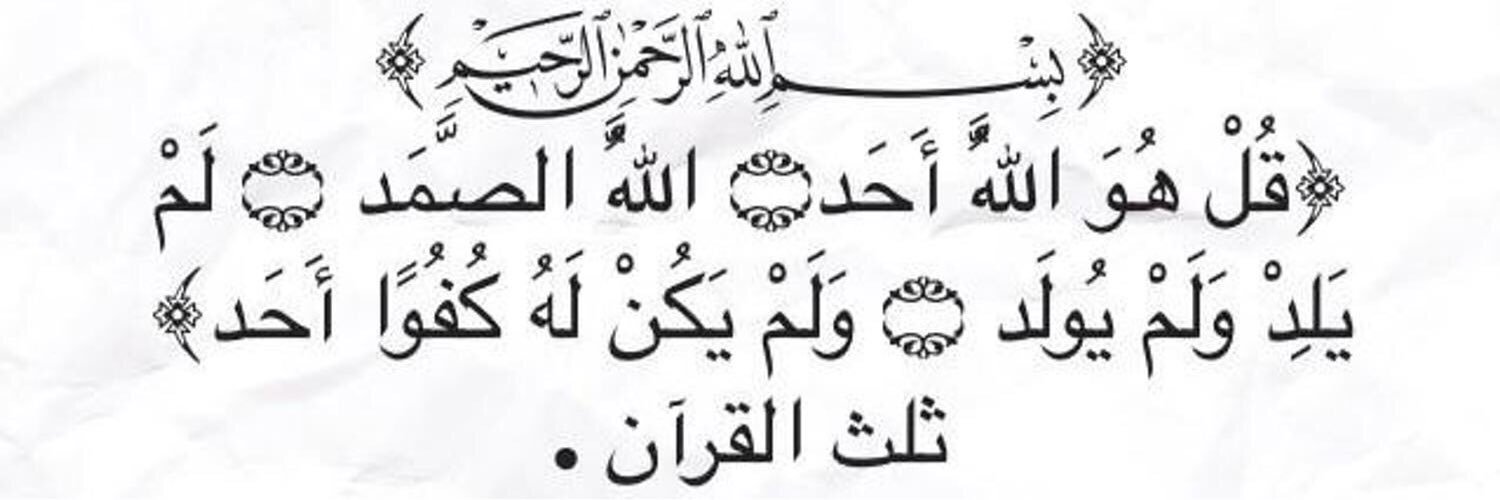 ﴿بِسْمِ ٱللَّهِ ٱلرَّحْمَٰنِ ٱلرَّحِيمِ﴾
﴿قُلْ هُوَ اللَّهُ أَحَد ۝ اللَّهُ الصَّمَد ۝ لَمْ
يَلِدْ وَلَمْ يُولَد ۝ وَلَمْ يَكُنْ لَهُ كُفُوًا أَحَد﴾
ثلث القرآن .